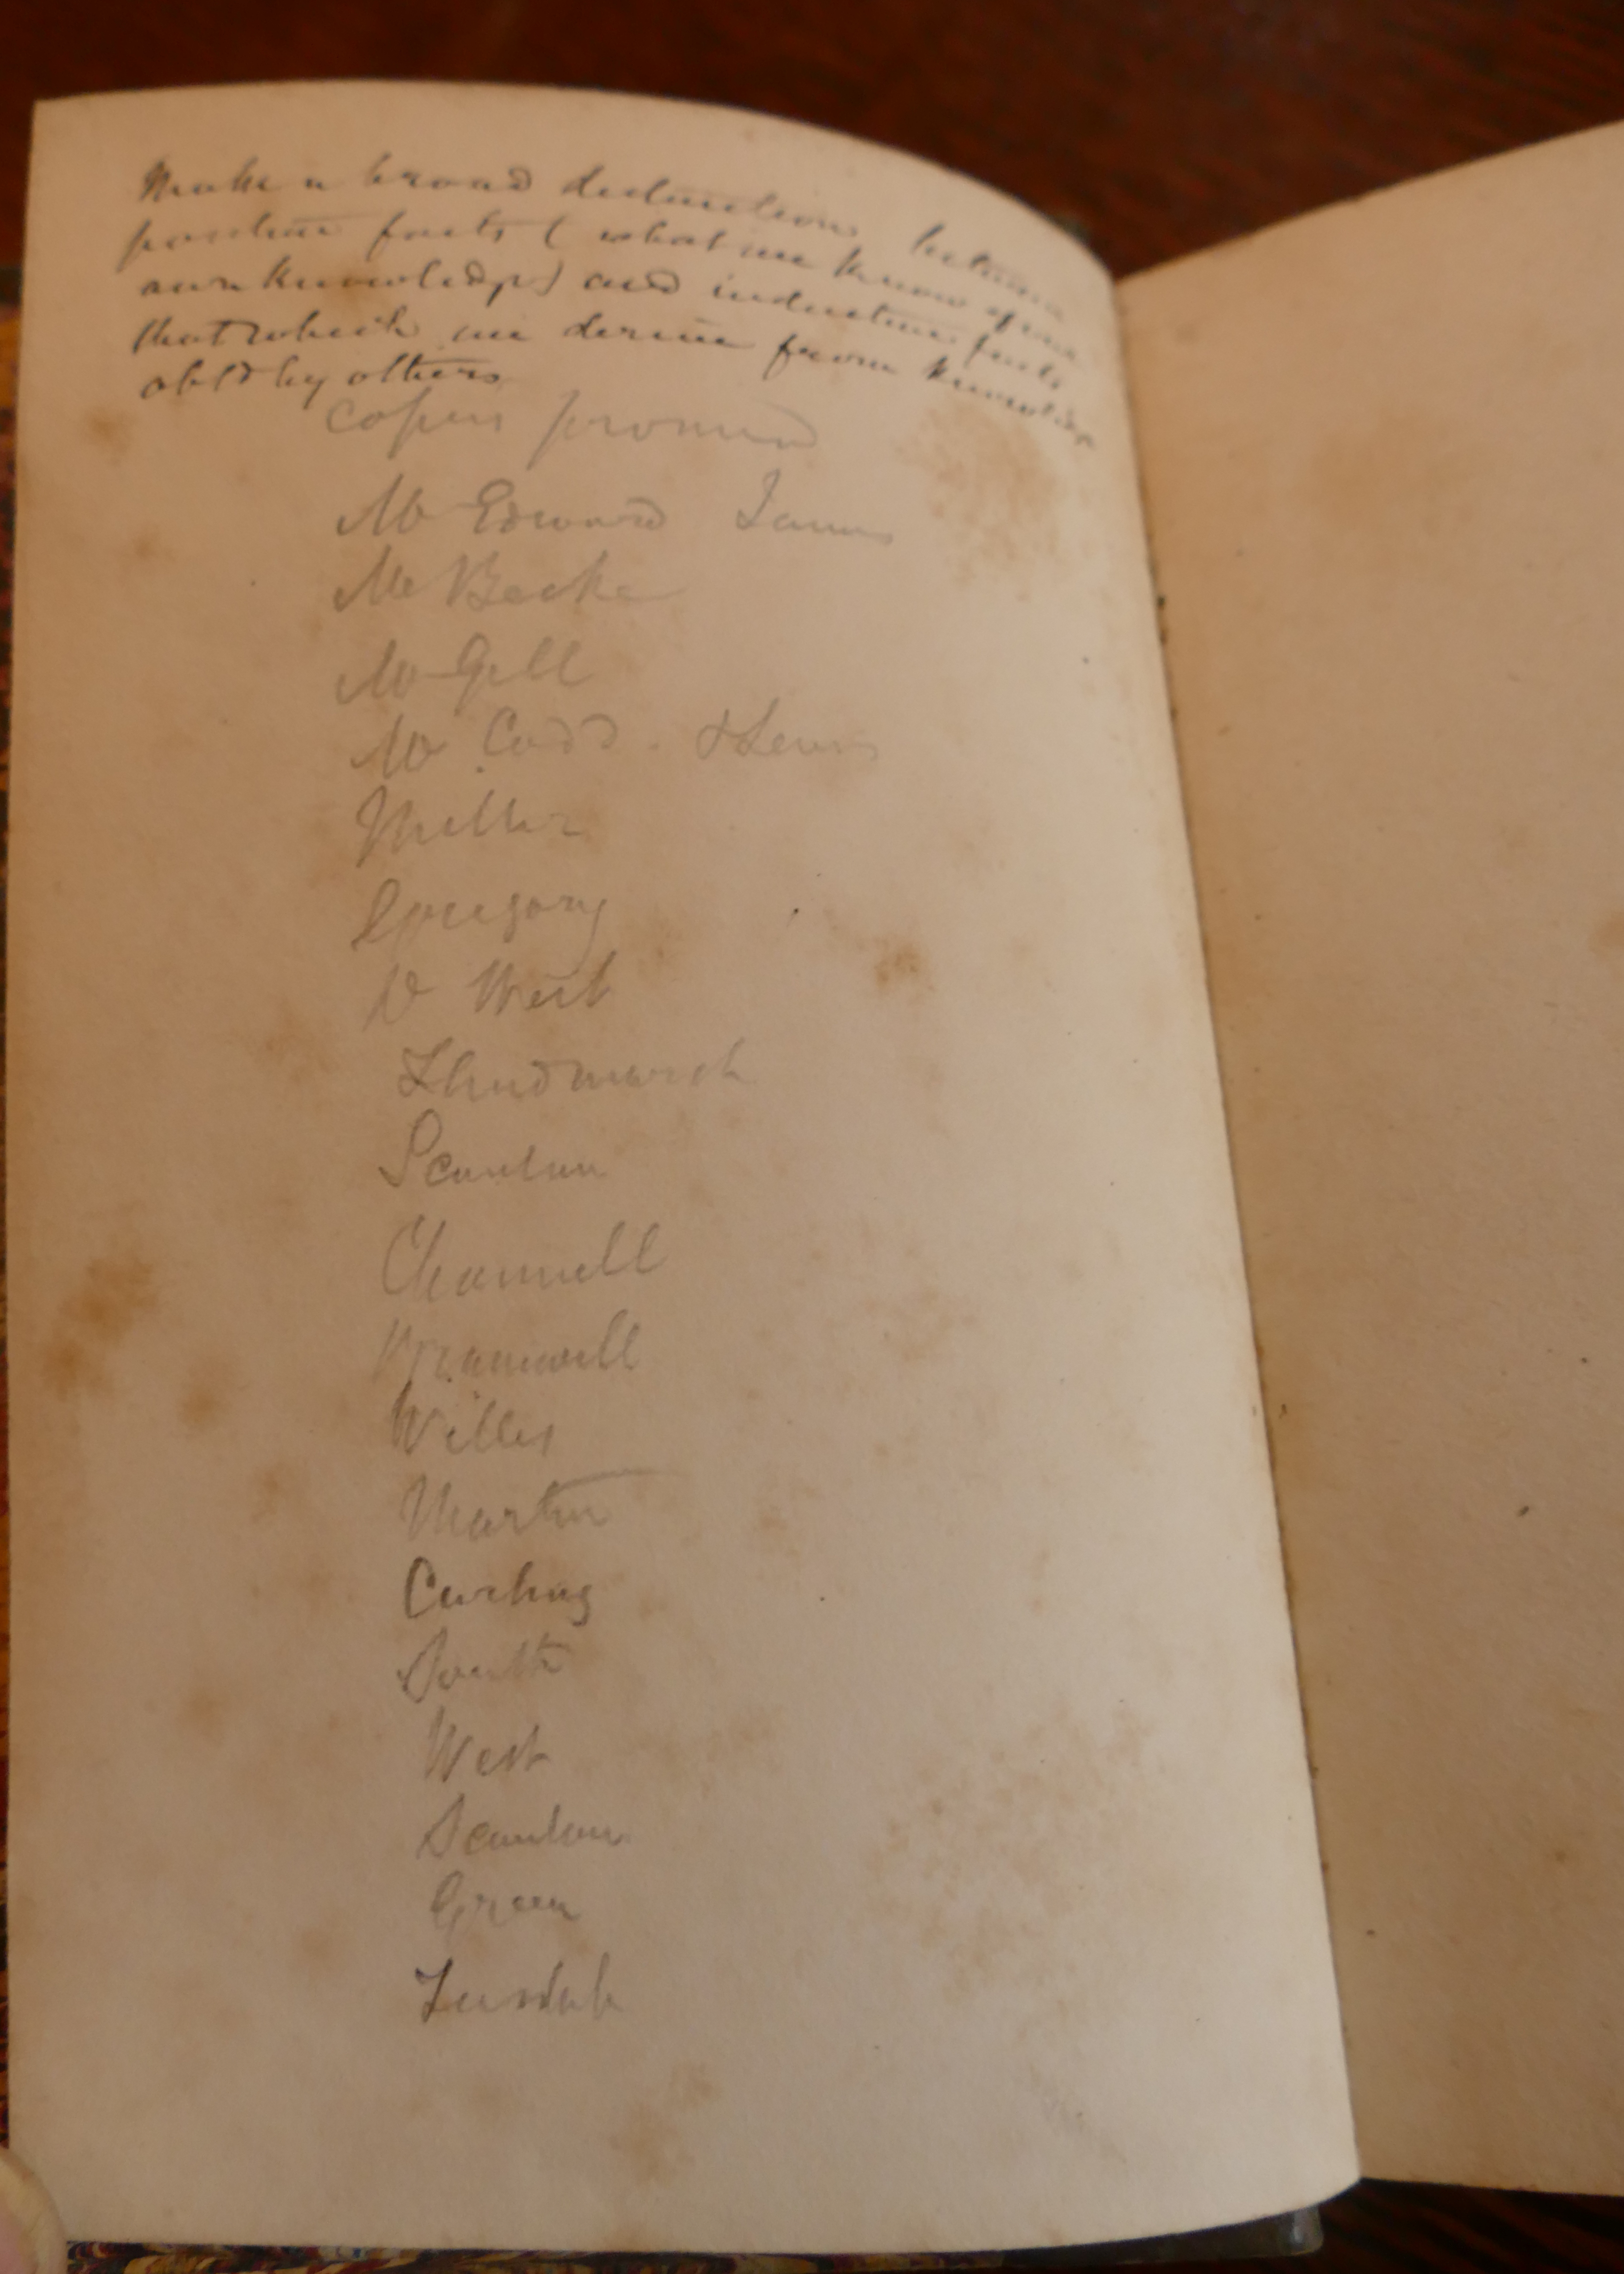 Make a broad distinction between
positive facts ( what we know of our
own knowledge) and inductive facts
that which we derive from knowledge
obtd by others
Copies promised
Mr Edward James
Mr Becke
Mr Gill
Mr Codd. & Lewis
Miller
Gregory
Dr West
Hindmarch
Scanlan
Channell
Bramwell
Willes
Martin
Curling
South
West
Scanlan
Green